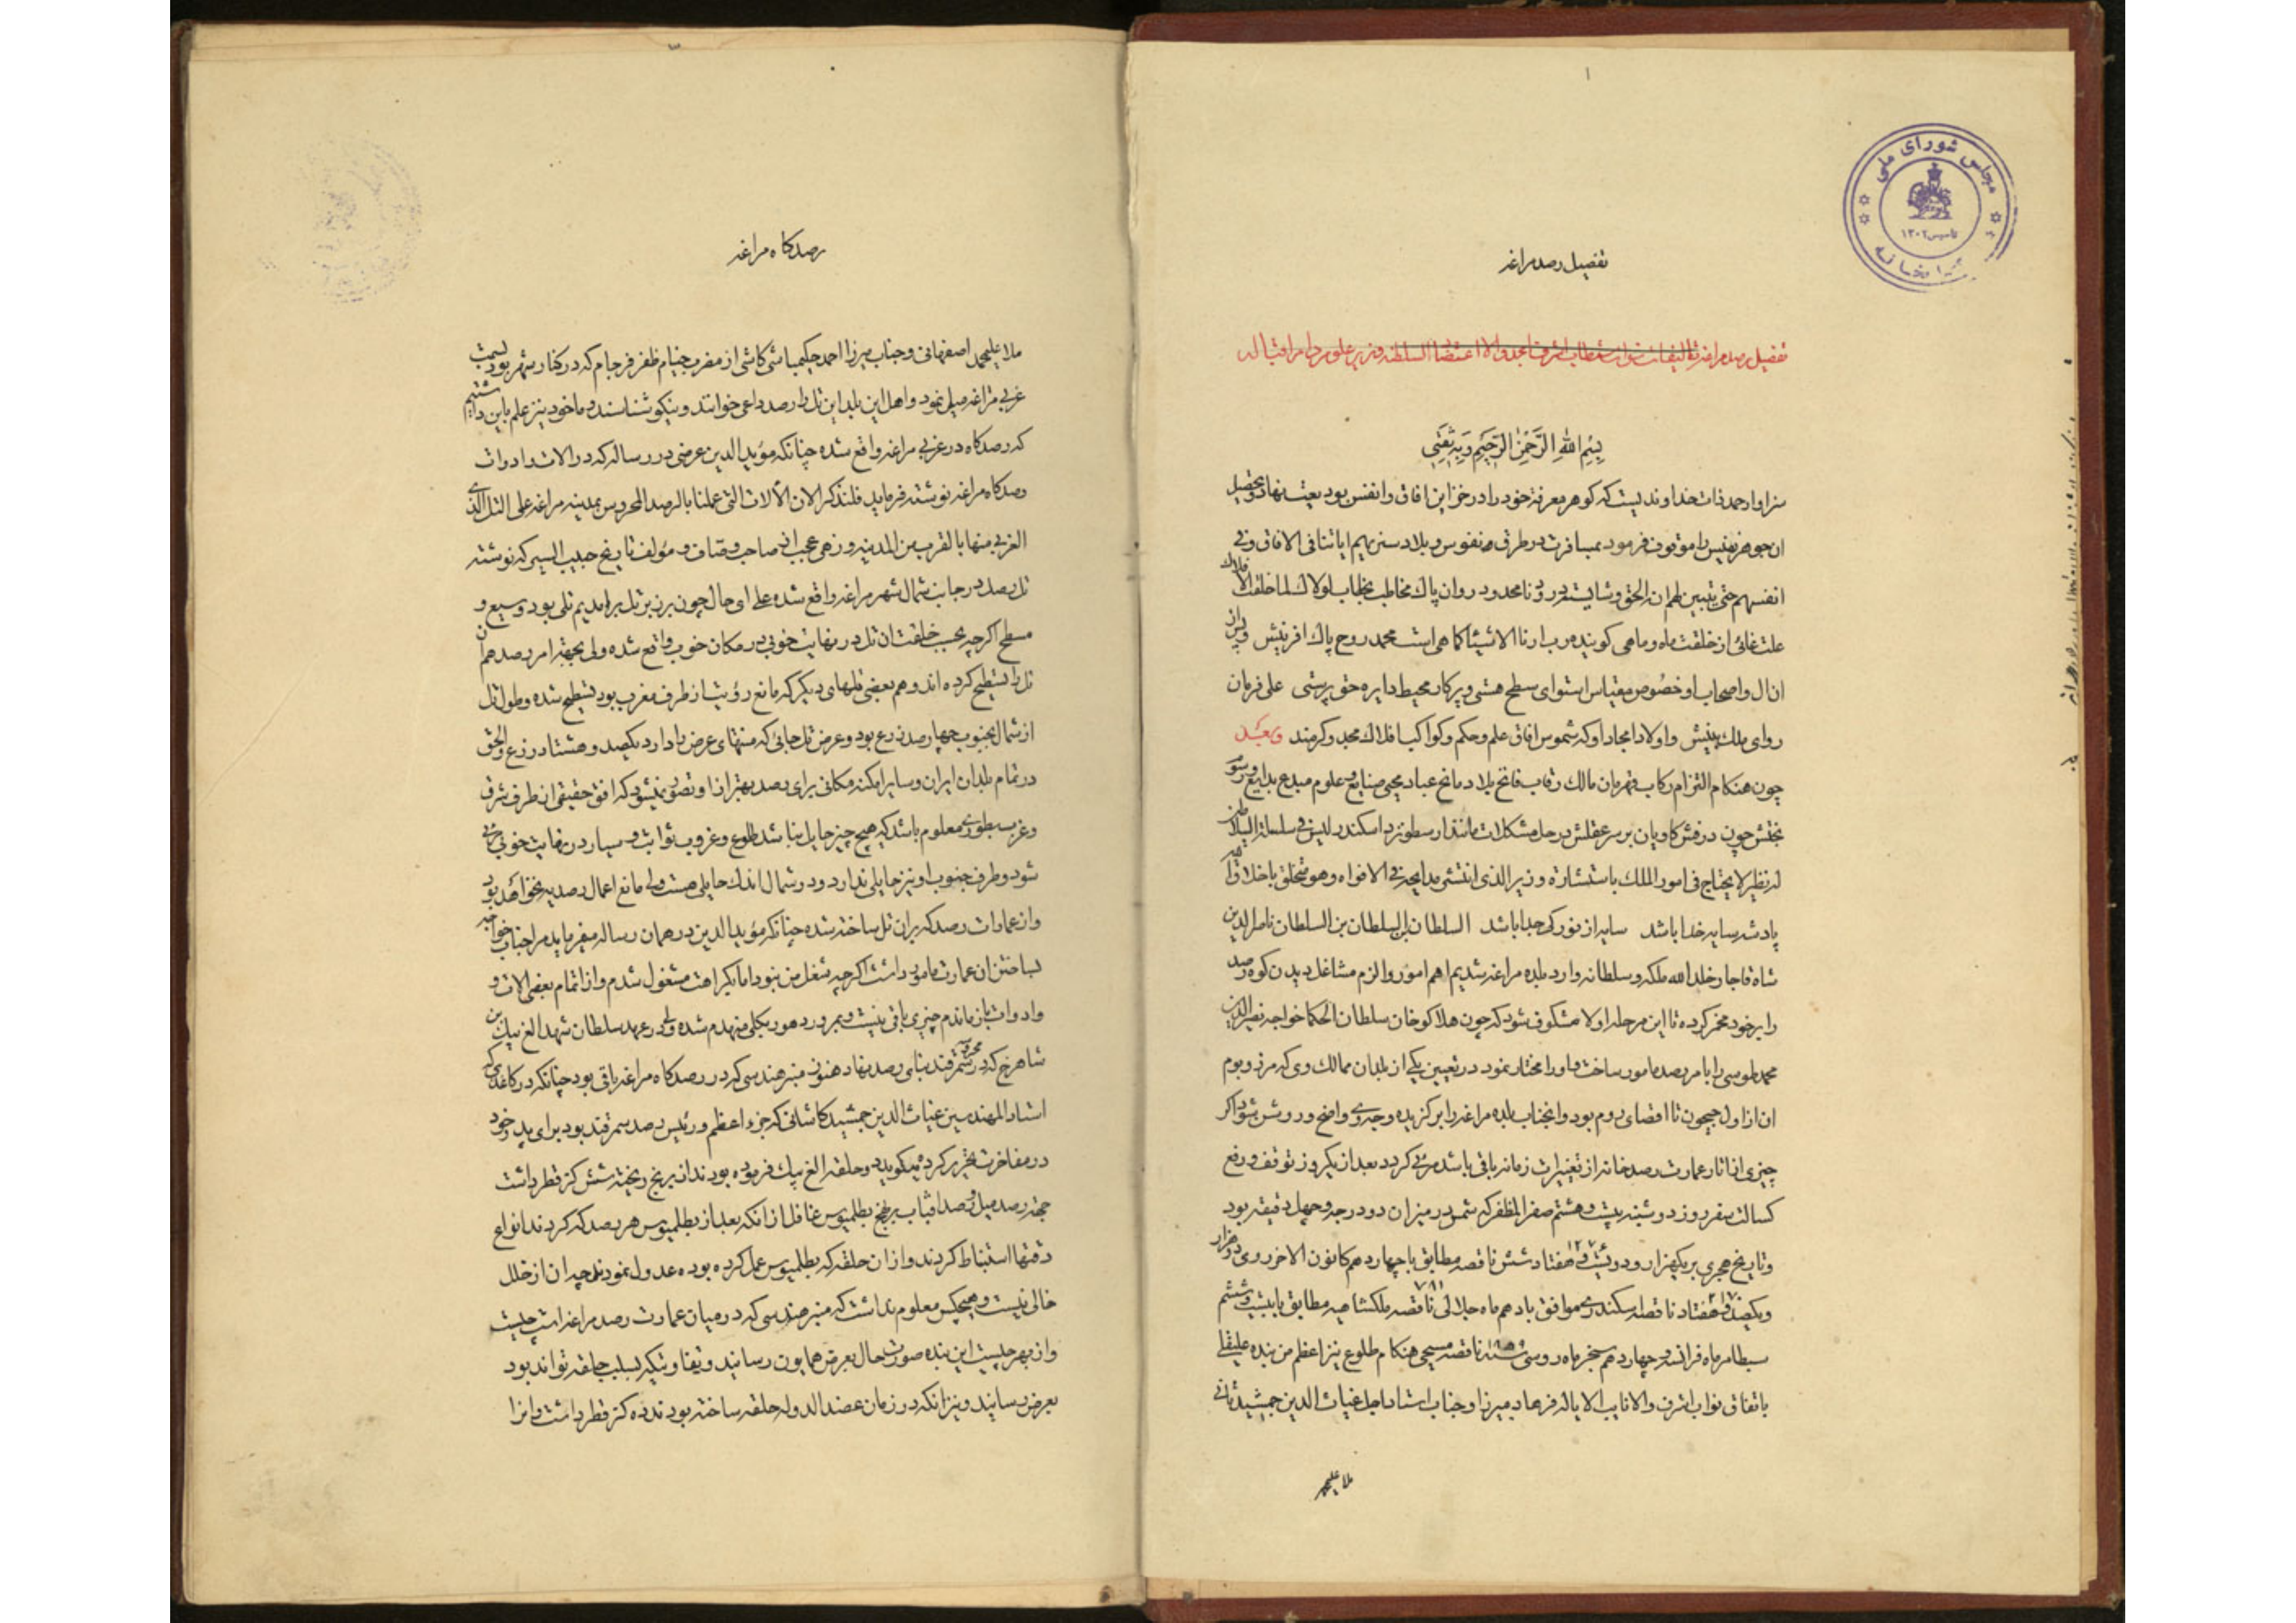 ۱
مجلس شورای ملی
تاسیس ۱۳۰۲
کتابخانه
تفصیل رصد مراغه
تفصیل رصد مراغه تالیفات نواب مستطاب اشرف امجد والا اعتضاد السلطنه وزیر علوم دام اقباله
بِسْمِ اللهِ الرَّحْمٰنِ الرَّحِيمِ وَبِهِ ثِقَتِي
سزاوار حمد ذات خداوندیست که کوهر معرفة خود را در خزاین افاق وانفس بودیعت نهاد وتحصیل
ان جوهر نفیس را موقوف فرمود بمسافرت در طرق نفوس و بلاد سنریهم ایاتنا فی الافاق وفی
انفسهم حتی یتبین لهم انه الحق وشایسته درود نامحدود روان پاک مخاطب بخطاب لولاک لما خلقت الافلاک
علت غائی از خلقت ماه وماهی کوینده رب ارنا الاشیاء کما هی است محمد روح پاک افرینش وپس از
ان ال واصحاب او خصوص مقیاس استوای سطح هستی و پرکار محیط دایره حق پرستی علی فرمان
روای ملک بینش واولاد امجاد او که شموس افاق علم وحکم وکواکب افلاک مجد وکرمند وبعد
چون هنکام التزام رکاب قهرمان مالک رقاب فاتح بلاد مانح عباد محیی صنایع وعلوم مبدع بدایع ورسوم
بختش چون درفش کاویان بر سر عقلش در حل مشکلات مانند ارسطو نزد اسکندر لیس فی سلسلة السلاطین
له نظیر لایحتاج فی امور الملک باستشارة وزیر الذی انتشی مدایحه فی الافواه وهو متخلق باخلاق الله
پادشه سایه خدا باشد سایه از نور کی جدا باشد السلطان بن السلطان بن السلطان ناصرالدین
شاه قاجار خلد الله ملکه وسلطانه وارد بلده مراغه شدیم اهم امور والزم مشاغل دیدن کوه رصد
را بر خود مخمر کرده تا این مرحله اولا مشکوف شود که چون هلاکو خان سلطان الحکما خواجه نصیرالدین
محمد طوسی را بامر رصد مامور ساخت واو را مختار نمود در تعیین یکی از بلدان ممالک وی که مرز وبوم
ان از اول جیحون تا اقصای روم بود وانجناب بلده مراغه را بر کزیده وجه وی واضح وروشن شود اکر
چیزی از اثار عمارت رصدخانه از تغییرات زمانه باقی باشد مرئی کردد بعد از یکروز توقف ورفع
کسالت سفر روز دوشنبه بیست وهشتم صفر المظفر که شمس در میزان دو درجه وچهل دقیقه بود
وتاریخ هجری بر یکهزار ودویست وهفتاد شش ناقصه مطابق با چهاردهم کانون الاخر رومی دوهزار
ویکصد وهفتاد ناقصه اسکندری موافق با دهم ماه جلالی ۷۸۱ ناقصه ملکشاهیه مطابق با بیست وششم
سبطامر ماه فرانسه وچهاردهم ماه روسی ناقصه مسیحی هنکام طلوع نیر اعظم من بنده علیقلی
باتفاق نواب اشرف والا نایب الایاله فرهاد میرزا وجناب استاد اجل غیاث الدین جمشید ثانی
ملا علیمحمد
رصدکاه مراغه
ملا علیمحمد اصفهانی وجناب میرزا احمد حکیمباشی کاشی از مضرب خیام ظفر فرجام که در کنار شهر بود بسمت
غربی مراغه میل نمود واهل این بلد این تل را رصد داغی خوانند ونیکو شناسند وما خود نیز علم باین داشتیم
که رصدکاه در غربی مراغه واقع شده چنانکه مؤید الدین عرضی در رساله که در الات وادوات
رصدکاه مراغه نوشته فرماید فلنذکر الان الآلات التی عملنا بالرصد المحروس بمدینه مراغه علی التل الذی
الغربی منها بالقرب من المدینه وزهی عجب از صاحب وصاف و مؤلف تاریخ حبیب السیر که نوشته
تل رصد در جانب شمال شهر مراغه واقع شده علی ای حال چون بر زبر تل بر امدیم تلی بود وسیع و
مسطح اکرچه بحسب خلقت ان تل در نهایت خوبی در مکان خوب واقع شده ولی بجهة امر رصد هم ان
تل را تسطیح کرده اند وهم بعضی تلهای دیکر که مانع رؤیت از طرف مغرب بود تسطیح شده وطول تل
از شمال بجنوب چهارصد ذرع بود وعرض تل جائی که منتهای عرض را دارد یکصد وهشتاد ذرع والحق
در تمام بلدان ایران وسایر امکنه مکانی برای رصد بهتر از او تصور نمیشود که افق حقیقی از طرف شرق
وغرب بطوری معلوم باشد که هیچ چیز حایل نباشد طلوع وغروب ثوابت وسیار در نهایت خوبی مرئی
شود وطرف جنوب او نیز حایلی ندارد ودر شمال اندک حایلی هست ولی مانع اعمال رصدیه نخواهد بود
واز عمارات رصد که بران تل ساخته شده چنانکه مؤید الدین در همان رساله میفرماید مرا جناب خواجه
بساختن ان عمارت مامور داشت اکرچه شغل من نبود اما بکراهت مشغول شدم واز اتمام بعضی الات و
وادوات باز ماندم چیزی باقی نیست وبمرور دهور بکلی منهدم شده ولی در عهد سلطان شهید الغ بیک بن
شاهرخ که در محروسه سمرقند بنای رصد نهاد هنوز منبر هندسی که در رصدکاه مراغه باقی بود چنانکه در کاغذی که
استاد المهندسین غیاث الدین جمشید کاشانی که جزء اعظم ورئیس رصد سمرقند بود برای پدر خود
در مفاخرت تحریر کرده میکوید وحلقه الغ بیک فرموده بودند از برنج ریخته شش کز قطر داشت
جهة رصد میل ورصد افتاب بر نهج بطلمیوس غافل از انکه بعد از بطلمیوس هر رصد که کردند انواع
دقتها استنباط کردند واز ان حلقه که بطلمیوس عمل کرده بوده عدول نمودند چه ان از خلل
خالی نیست وهیچکس معلوم نداشت که منبر هندسی که در میان عمارت رصد مراغه است چیست
واز بهر چیست این بنده صورت حال بعرض همایون رسانید وتفاوتیکه بسبب حلقه تواند بود
بعرض رسانید ونیز انکه در زمان عضد الدوله حلقه ساخته بودند ده کز قطر داشت وانرا